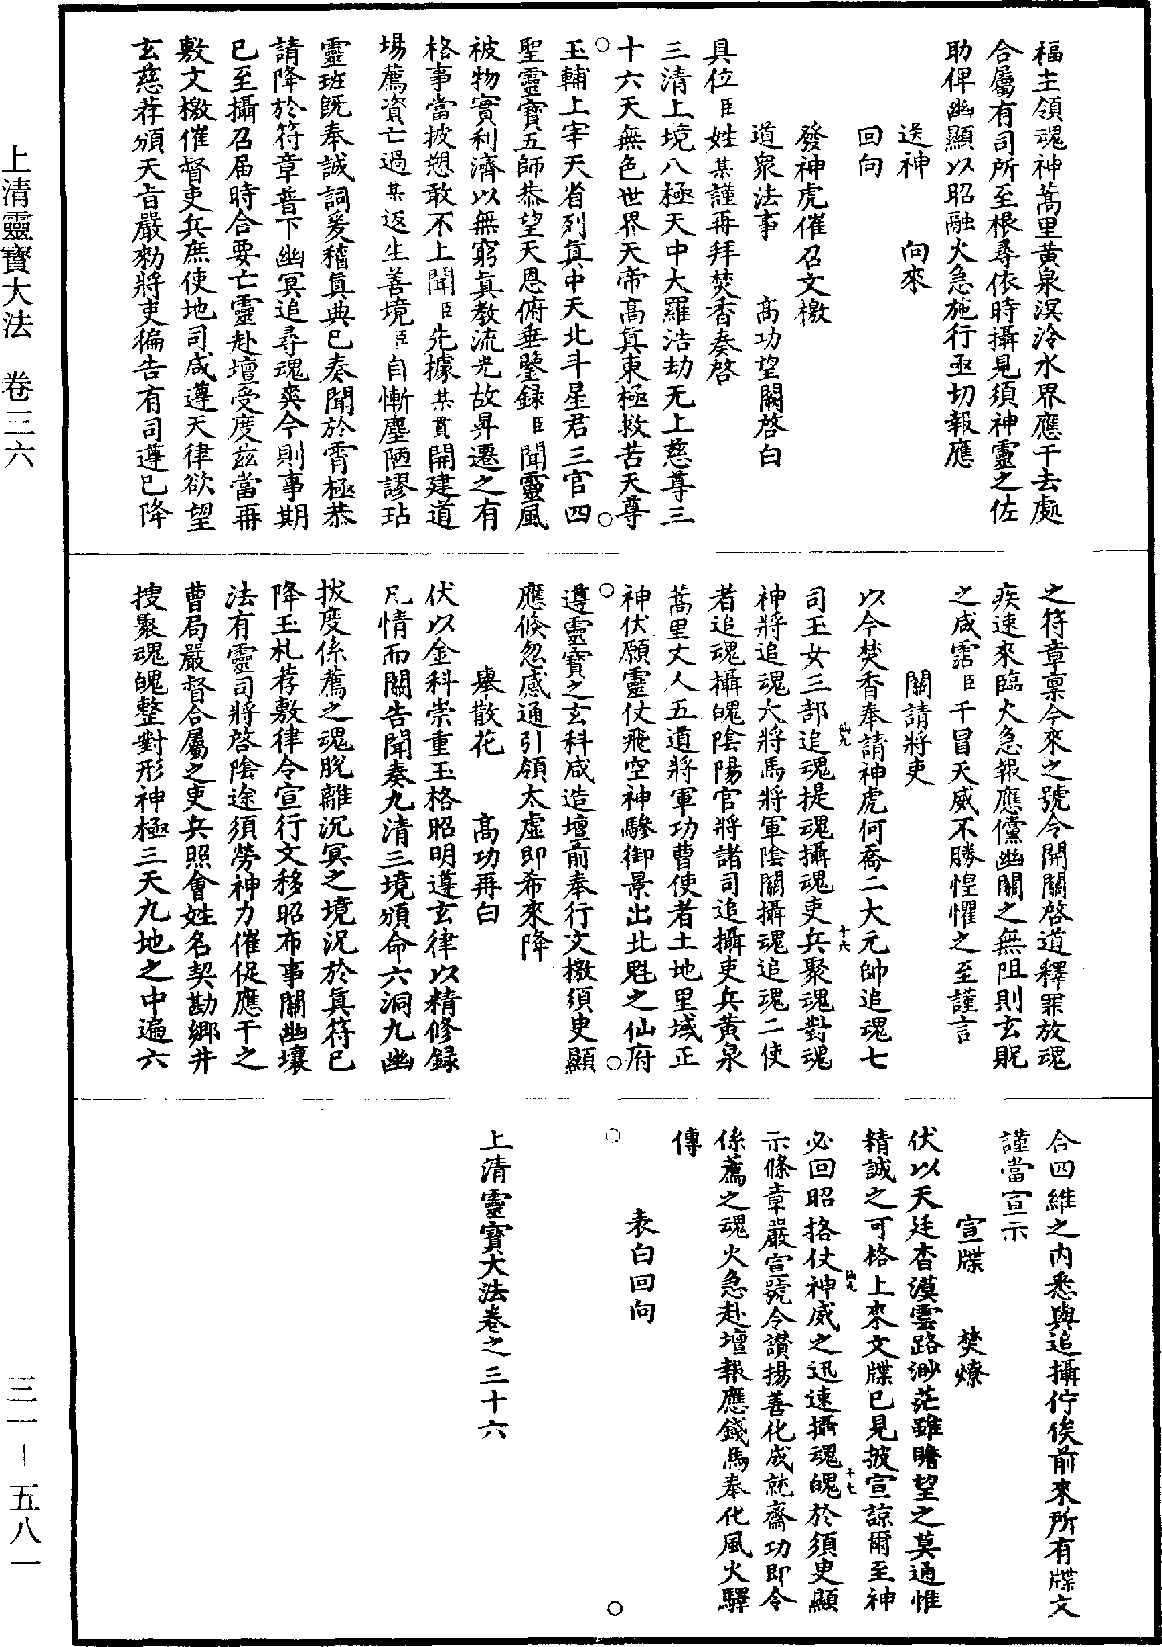 福主領魂神蒿里黃泉溟泠水界應干去處
合屬有司所至根尋依時攝見須神靈之佐
助俾幽顯以昭融火急施行亟切報應
送神　　向來
回向
發神虎催召文檄
道衆法事　　高功望闕啓白
具位臣姓某謹再拜焚香奏啓
三清上境八極天中大羅浩劫无上慈尊三
十六天無色世界天帝高真東極救苦天尊
玉輔上宰天省列真中天北斗星君三官四
聖靈寶五師恭望天恩俯垂鑒錄臣聞靈風
被物實利濟以無窮真教流光故昇遷之有
格事當披愬敢不上聞臣先據某貫開建道
場薦資亡過某返生善境臣自慚塵陋謬玷
靈班旣奉誠詞爰稽真典已奏聞於霄極恭
請降於符章普下幽冥追尋魂爽今則事期
已至攝召届時合要亡靈赴壇受度茲當再
敷文檄催督吏兵庶使地司咸遵天律欲望
玄慈荐頒天旨嚴勑將吏徧告有司遵已降
之符章禀今來之號令開關啓道釋罪放魂
疾速來臨火急報應儻幽關之無阻則玄貺
之咸霑臣干冒天威不勝惶懼之至謹言
關請將吏
以今焚香奉請神虎何喬二大元帥追魂七
司玉女三部追魂提魂攝魂吏兵聚魂對魂
神將追魂大將馬將軍陰關攝魂追魂二使
者追魂攝魄陰陽官將諸司追攝吏兵黃泉
蒿里丈人五道將軍功曹使者土地里域正
神伏願靈仗飛空神驂御景出北魁之仙府
遵靈寶之玄科咸造壇前奉行文檄須臾顯
應倏忽感通引領太虛即希來降
舉散花　　高功再白
伏以金科崇重玉格昭明遵玄律以精修錄
凡情而關告聞奏九清三境頒命六洞九幽
拔度係薦之魂脫離沉冥之境況於真符已
降玉札荐敷律令宣行文移昭布事關幽壤
法有靈司將啓陰途須勞神力催促應干之
曹局嚴督合屬之吏兵照會姓名契勘鄉井
搜聚魂魄整對形神極三天九地之中遍六
合四維之內悉與追攝佇俟前來所有牒文
謹當宣示
宣牒　　焚燎
伏以天廷杳漠雲路渺茫雖瞻望之莫通惟
精誠之可格上來文牒已見披宣諒爾至神
必回昭格仗神威之迅速攝魂魄於須臾顯
示條章嚴宣號令讃揚善化成就齋功即令
係薦之魂火急赴壇報應錢馬奉化風火驛
傳
表白回向
上清靈寶大法卷之三十六
上清靈寶大法　卷三六
三一－五八一